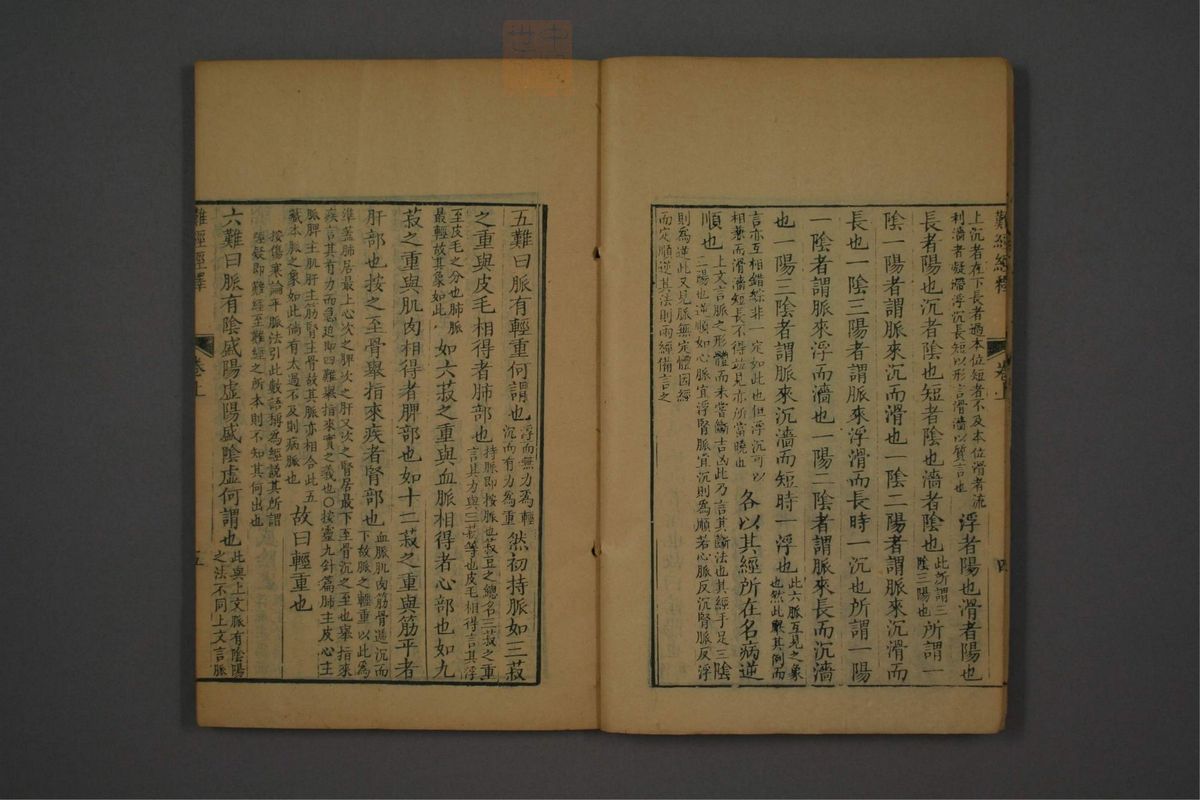 難經經釋 卷上 四
上沉者在下長者過本位短者不及本位滑者流
利濇者凝滯浮沉長短以形言滑濇以質言也
浮者陽也滑者陽也
長者陽也沉者陰也短者陰也濇者陰也
此所謂三
陰三陽也
所謂一
陰一陽者謂脈來沉而滑也一陰二陽者謂脈來沉滑而
長也一陰三陽者謂脈來浮滑而長時一沉也所謂一陽
一陰者謂脈來浮而濇也一陽二陰者謂脈來長而沉濇
也一陽三陰者謂脈來沉濇而短時一浮也
此六脈互見之象
也然此舉其例而
言亦互相錯綜非一定如此也但浮沉可以
相兼而滑濇短長不得並見亦所當曉也
各以其經所在名病逆
順也
上文言脈之形體而未嘗斷吉凶此乃言其斷法也其經手足三陰
三陽也逆順如心脈宜浮腎脈宜沉則為順若心脈反沉腎脈反浮
則為逆此又見脈無定體因經
而定順逆其法則兩經備言之
五難曰脈有輕重何謂也
浮而無力為輕
沉而有力為重
然初持脈如三菽
之重與皮毛相得者肺部也
持脈即按脈也菽豆之總名三菽之重
言其力與三菽等也皮毛相得言其浮
至皮毛之分也肺脈
最輕故其象如此
如六菽之重與血脈相得者心部也如九
菽之重與肌肉相得者脾部也如十二菽之重與筋平者
肝部也按之至骨舉指來疾者腎部也
血脈肌肉筋骨遞沉而
下故脈之輕重以此為
準蓋肺居最上心次之脾次之肝又次之腎居最下至骨沉之至也舉指來
疾言其有力而急迫即四難舉指來實之義也○按靈九針篇肺主皮心主
脈脾主肌肝主筋腎主骨故其脈亦相合此五
藏本脈之象如此倘有太過不及則病脈也
故曰輕重也
按傷寒論平脈法引此數語稱為經說其所謂
經疑即難經至難經之所本則不知其何出也
六難曰脈有陰盛陽虛陽盛陰虛何謂也
此與上文脈有陰陽
之法不同上文言脈
難經經釋 卷上 五